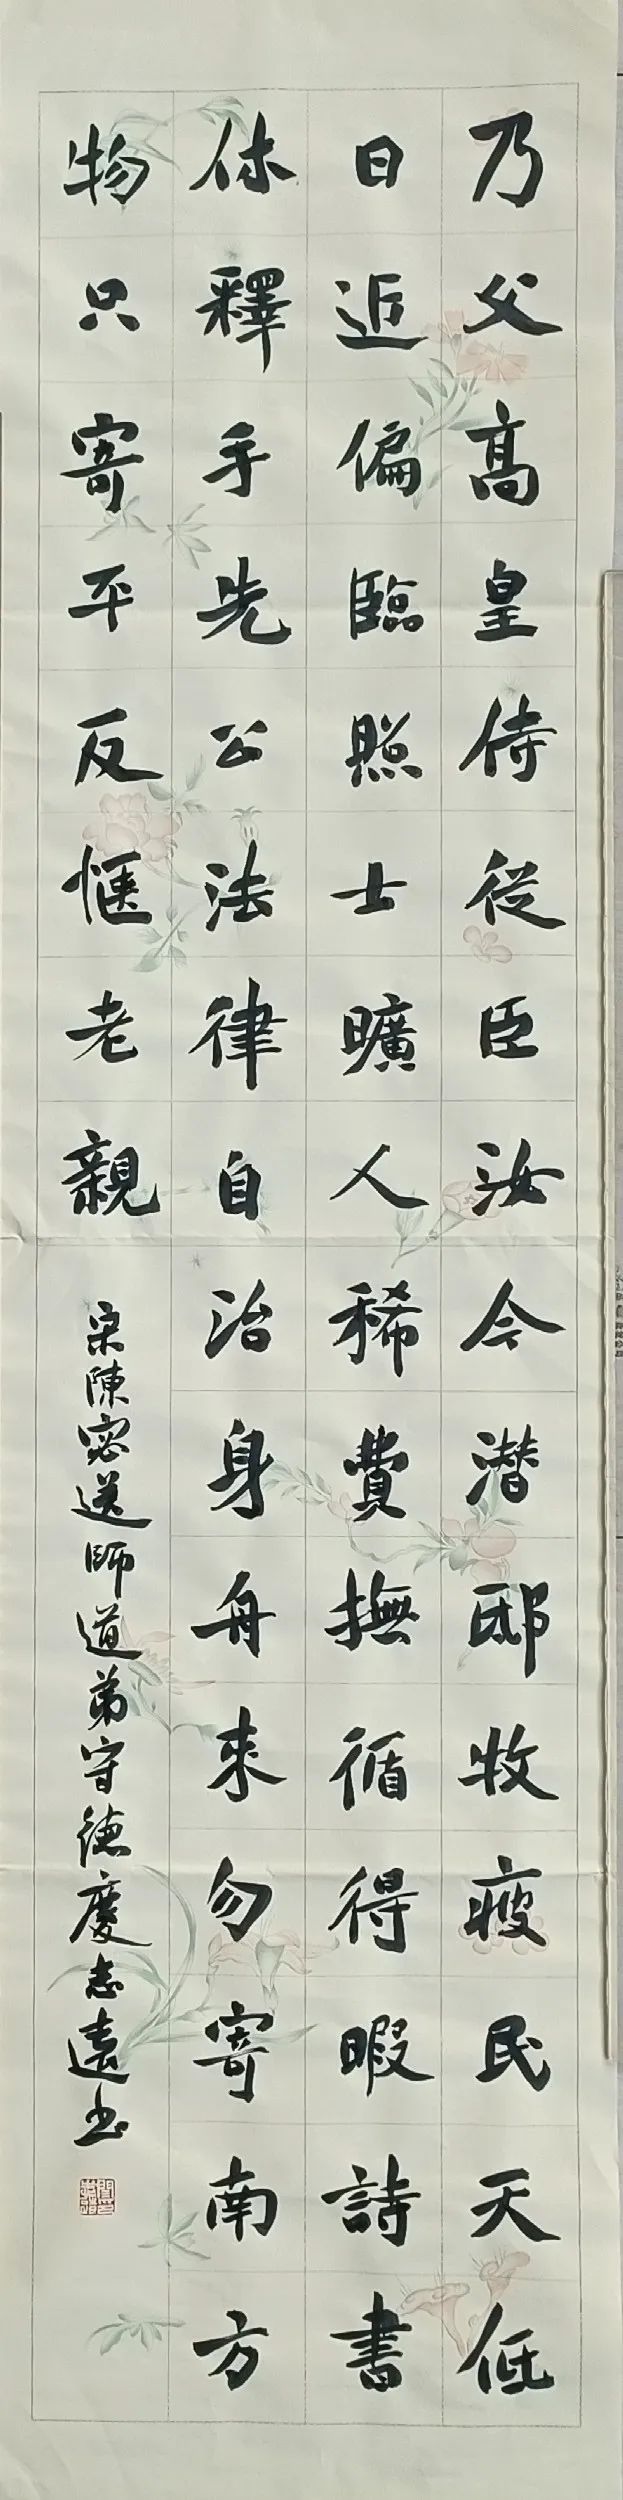 乃父高皇侍從臣汝今潜邸牧疲民天低
日近偏臨照士曠人稀費撫循得暇詩書
休釋手先公法律自治身舟來勿寄南方
物只寄平反愜老親
宋陳宓送師道弟守德慶志遠书